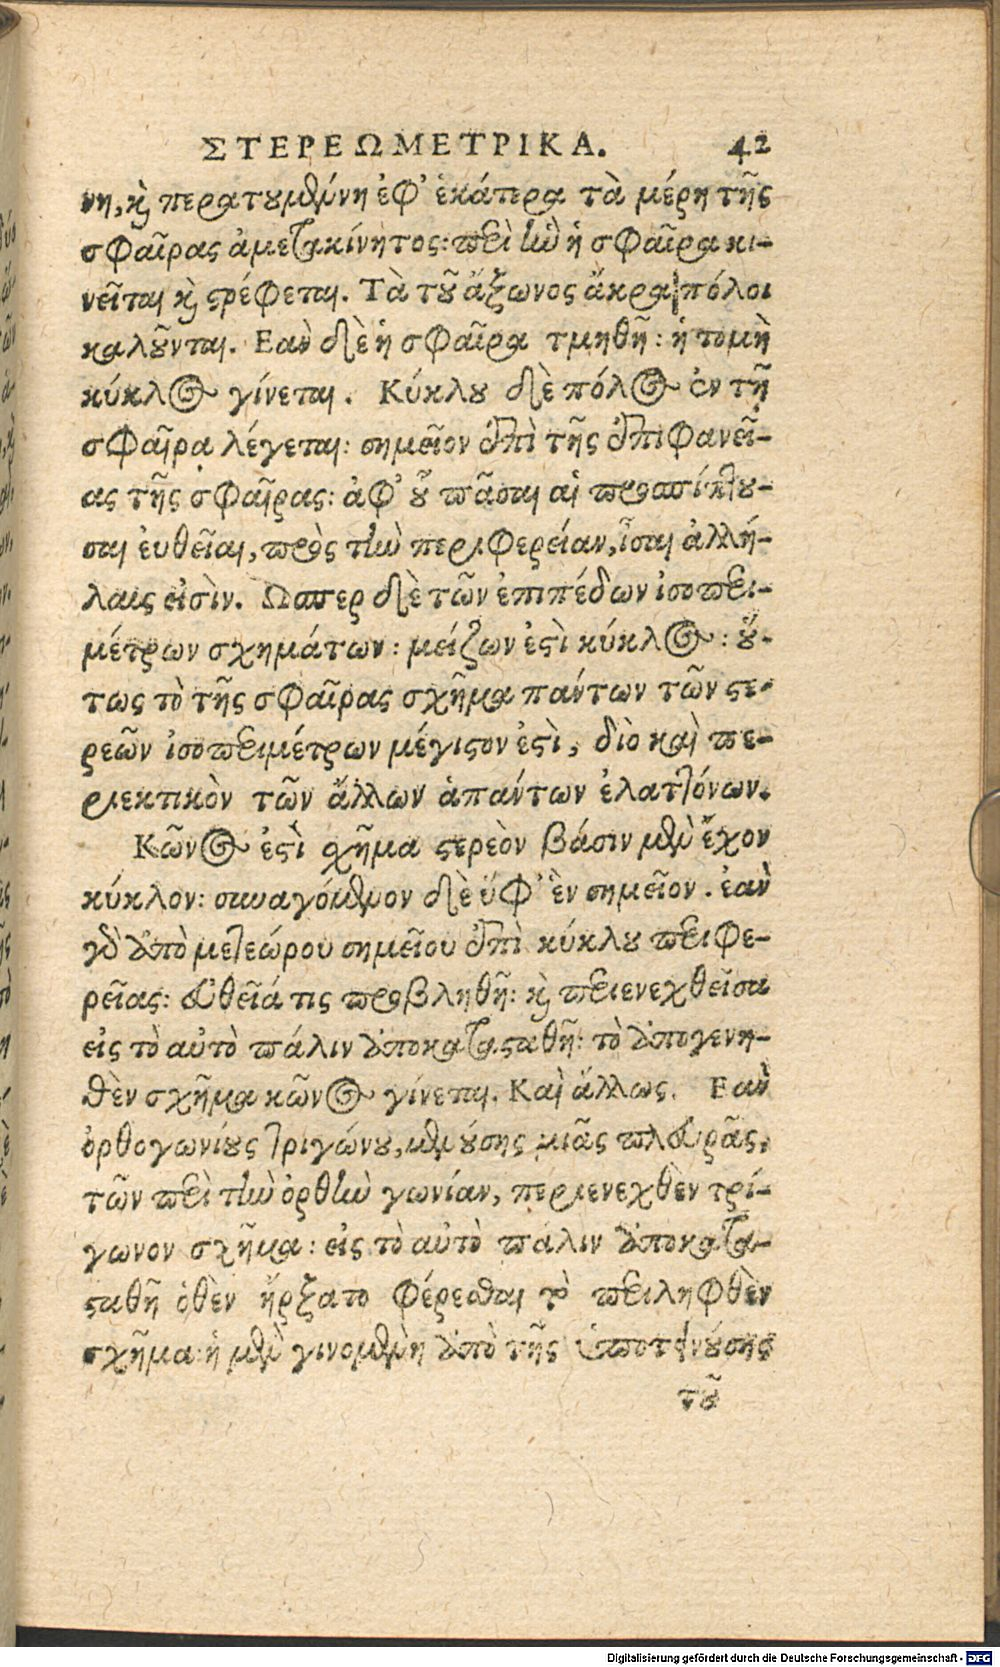 ΣΤΕΡΕΩΜΕΤΡΙΚΑ. 42
νη, καὶ περατουμένη ἐφ’ ἑκάτερα τὰ μέρη τῆς
σφαῖρας ἀμετακίνητος: περὶ ἣν ἡ σφαῖρα κι-
νεῖται καὶ στρέφεται. Τὰ τοῦ ἄξωνος ἄκρα πόλοι
καλοῦνται. Εαν δὲ ἡ σφαῖρα τμηθῇ: ἡ τομὴ
κύκλος γίνεται. Κύκλου δὲ πόλος ἐν τῇ
σφαῖρᾳ λέγεται: σημεῖον ἐπὶ τῆς ἐπιφανεῖ-
ας τῆς σφαῖρας: ἀφ’ οὗ πᾶσαι αἱ προσπίπτου-
σαι ἐυθεῖαι, πρὸς τὴν περιφερείαν, ἶσαι ἀλλή-
λαις εἰσὶν. Ωσπερ δὲ τῶν ἐπιπέδων ἰσοπερι-
μέτρων σχημάτων: μείζων ἐστὶ κύκλος: οὕ-
τως τὸ τῆς σφαῖρας σχῆμα πάντων τῶν στε-
ρεῶν ἰσοπεριμέτρων μέγιστον ἐστὶ, διὸ καὶ πε-
ριεκτικὸν τῶν ἄλλων ἁπάντων ἐλαττόνων.
Κῶνος ἐστὶ σχῆμα στερεὸν βάσιν μὲν ἔχον
κύκλον: συναγόμενον δὲ ὑφ’ ἓν σημεῖον. ἐαν
γὰρ ἀπὸ μετεώρου σημείου ἐπὶ κύκλου περιφε-
ρείας: εὐθεῖά τις προβληθῇ: καὶ περιενεχθεῖσα
εἰς τὸ αὐτὸ πάλιν ἀποκατασταθῇ: τὸ ἀπογενη-
θὲν σχῆμα κῶνος γίνεται. Καὶ ἄλλως. Εαν
ὀρθογωνίους τριγώνου, μενούσης μιᾶς πλευρᾶς,
τῶν περὶ τὴν ὀρθὴν γωνίαν, περιενεχθὲν τρί-
γωνον σχῆμα: εἰς τὸ αὐτὸ πάλιν ἀποκατα-
σταθῇ ὁθὲν ἤρξατο φέρεσθαι τὸ περιληφθὲν
σχῆμα: ἡ μὲν γινομένη ἀπὸ τῆς ὑποτεινούσης
τοῦ
Digitalisierung gefördert durch die Deutsche Forschungsgemeinschaft - DFG